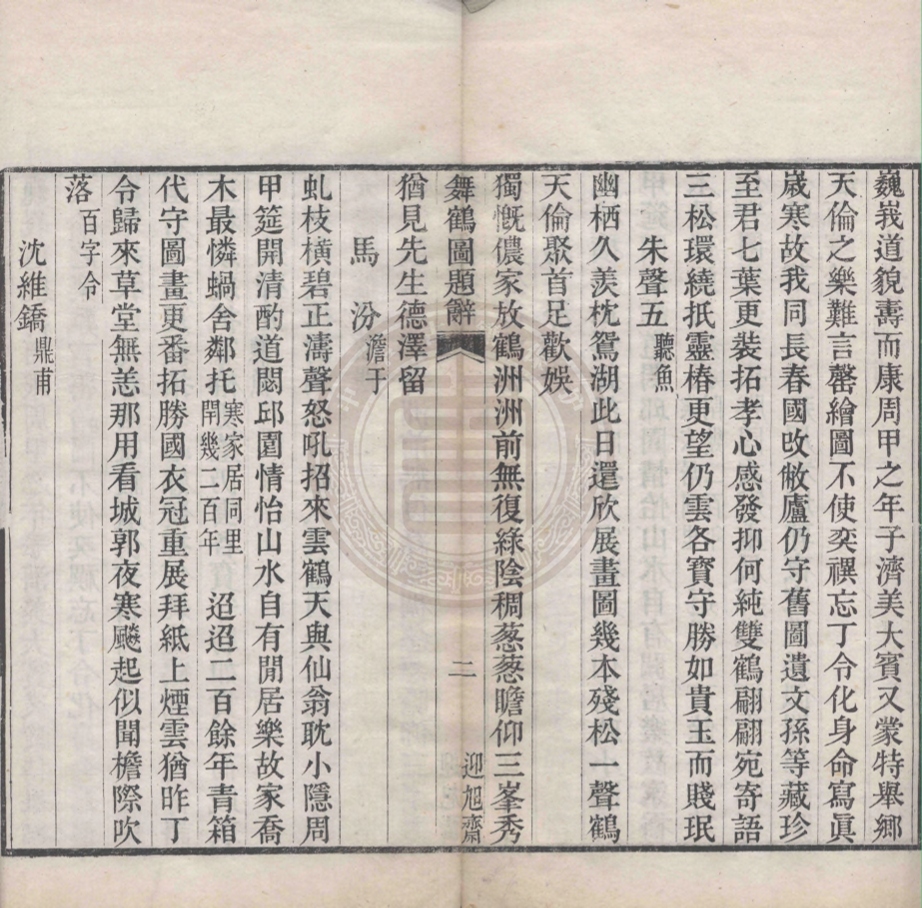 巍峩道貌壽而康周甲之年子濟美大賓又蒙特舉鄉
天倫之樂難言罄繪圖不使奕禩忘丁令化身命寫眞
嵗寒故我同長春國改敝廬仍守舊圖遺文孫等藏珍
至君七葉更裝拓孝心感發抑何純雙鶴翩翩宛寄語
三松環繞抵靈椿更望仍雲各寶守勝如貴玉而賤珉
朱聲五聽魚
幽栖久羡枕鴛湖此日還欣展畫圖幾本殘松一聲鶴
天倫聚首足歡娛
獨慨儂家放鶴洲洲前無復綠陰稠葱葱瞻仰三峯秀
舞鶴圖題辭 二 迎旭齋
猶見先生德澤留
馬汾澹于
虬枝橫碧正濤聲怒吼招來雲鶴天與仙翁耽小隱周
甲筵開清酌道閟邱園情怡山水自有閒居樂故家喬
木最憐蝸舍鄰托寒家居同里閈幾二百年迢迢二百餘年青箱
代守圖畫更番拓勝國衣冠重展拜紙上煙雲猶昨丁
令歸來草堂無恙那用看城郭夜寒飈起似聞檐際吹
落百字令
沈維鐈鼎甫